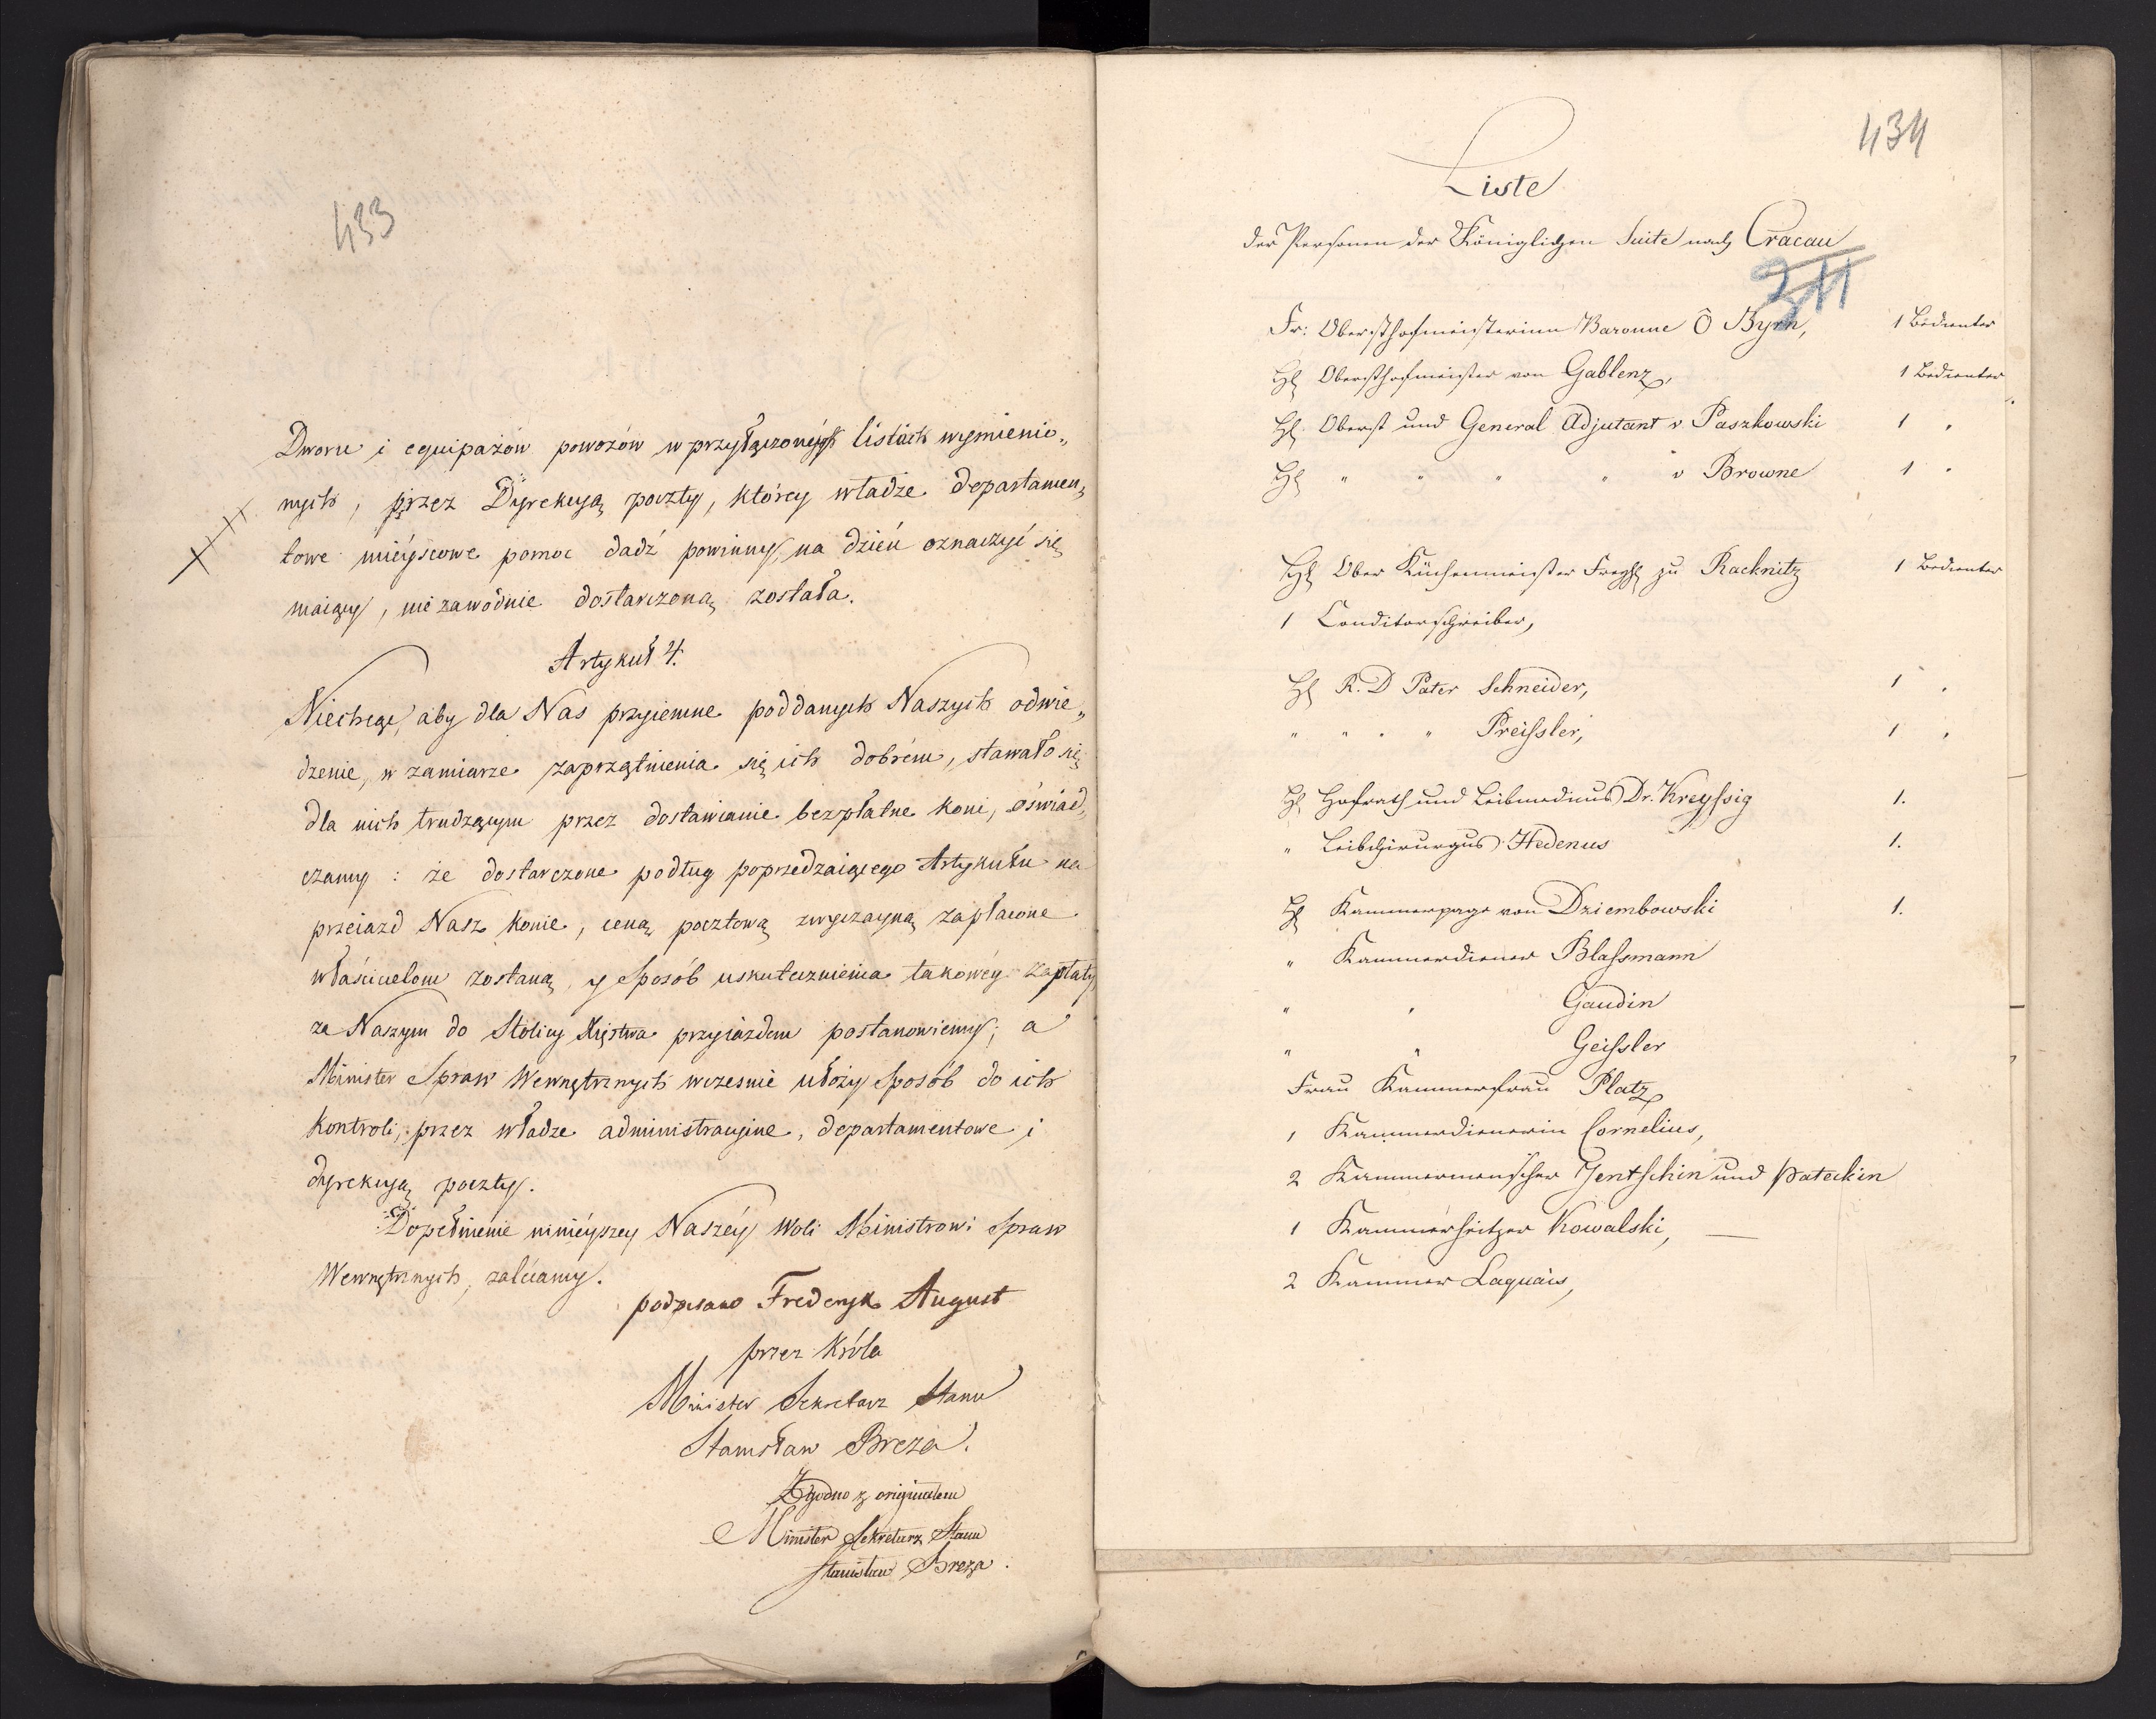 433
Dworu i equipażów powozów w przyłączonéych listach wymienio„
nych, przez Dyrekcyą poczty, którey władze departamen„
towe mieyscowe pomoc dadź powinny, na dzień oznaczyć się
maiący, niezawodnie dostarczoną została.
Artykuł 4.
Niechcąc, aby dla Nas przyiemne poddanych Naszych odwie„
dzenie, w zamiarze zaprzątnienia się ich dobrém, stawało się
dla nich trudzącym przez dostawianie bezpłatne koni, oświad„
czamy : że dostarczone podług poprzedzaiącego Artykułu na
przeiazd Nasz konie, ceną pocztową zwyczayną zapłacone
właścicielom zostaną, y sposób uskutecznienia takowéy zapłaty
za Naszym do Stolicy Xięstwa przyiazdem postanowiemy; a
Minister Spraw Wewnętrznych wcześnie ułoży sposób do ich
kontroli, przez władze administracyine, departamentowe i
dyrekcyą poczty.
Dopełnienie ninieyszey Naszéy Woli Ministrowi Spraw
Wewnętrznych, zalécamy.
podpisano Frederyk August
przez Króla
Minister Sekretarz Stanu
Stanisław Breza.
Zgodno z originałem
Minister Sekretarz Stanu
Stanisław Breza.
434
Liste
der Personen der Königlichen Suite nach Cracau
211
Fr: Obersthofmeisterinn Baronne Ô Byrn, 1 Bedienter
H Obersthofmeister von Gablenz, 1 Bedienter
H Oberst und General Adjutant v Paszkowski 1 "
H " " " " v Browne 1 "
H Ober Küchenmeister Freyh zu Racknitz 1 Bedienter
1 Conditorschreiber,
H R. D Pater Schneider, 1 "
" " " " Preissler, 1 "
H Hofrath und Leibmedicus Dr. Kreyssig 1.
" Leibchirurgus Hedenus 1.
H Kammerpage von Dziembowski 1.
" Kammerdiener Blassmann
" " Gaudin
" " Geissler
Frau Kammerfrau Platz
1 Kammerdienerin Cornelius,
2 Kammermenscher Jentschin und Pateckin
1 Kammerheitzer Kowalski, —
2 Kammer Laquais,